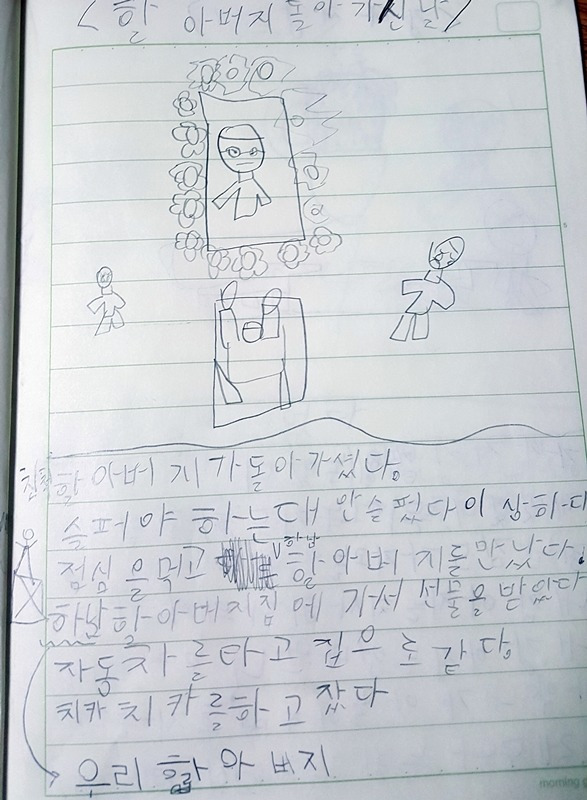 < 할 아버지 돌아가신 날 >
친할 할 아버 지 가 돌아 가셨다.
슬퍼야 하는대 안 슬펐다 이 상하다
점심 을 먹고 하남 할 아버 지를 만났다.
하남 하 아버지 집 에 가서 선물을 받았다
자동차 를 타고 집으 로 갔 다.
치카 치 카 를 하 고 잤다
우리 할 아 버지
morning